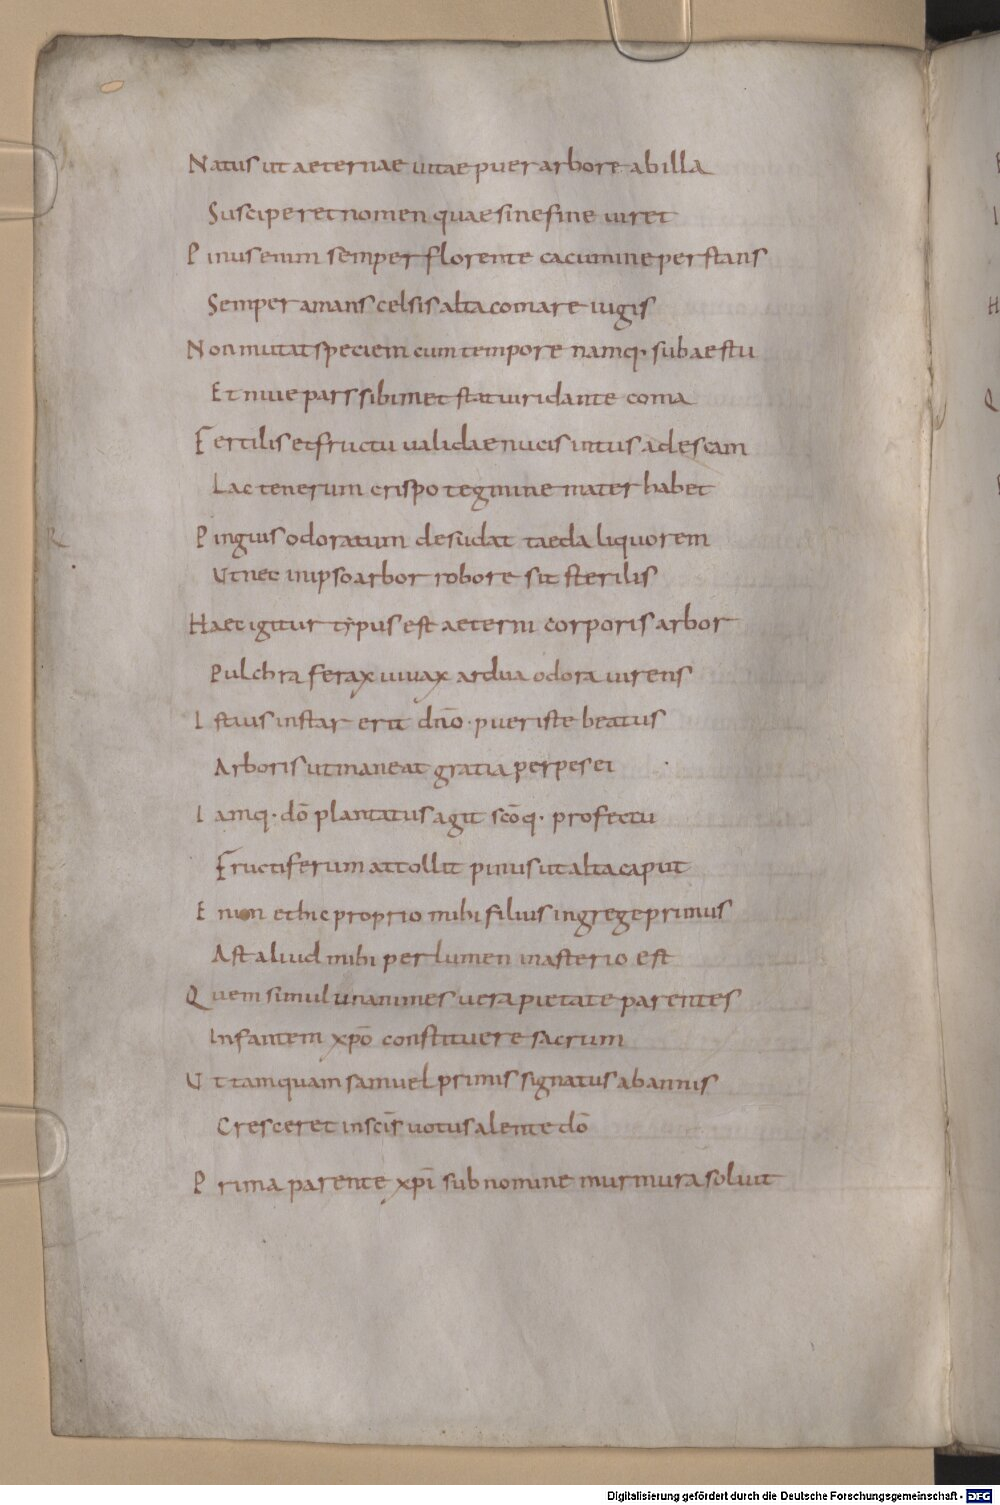 Natus ut aeternae vitae puer arbore ab illa
Susciperet nomen quae sine fine viret
Pinus enim semper florente cacumine perstans
Semper amans celsis alta comare iugis
Non mutat speciem cum tempore namq· sub aestu
Et nive pars sibimet stat viridante coma
Fertilis et fructu validae nucis intus ad escam
Lac tenerum crispo tegmine mater habet
Pinguis odoratum desudat taeda liquorem
Ut nec in ipso arbor robore sit sterilis
Haec igitur typus est aeterni corporis arbor
Pulchra ferax vivax ardua odora virens
Istius instar erit dn̄o· puer iste beatus
Arboris ut maneat gratia perpes ei
Iamq· dō plantatus agit scōq· profectu
Fructiferum attollit pinus ut alta caput
Enim et hic proprio mihi filius in grege primus
Ast aliud mihi per lumen in asterio est
Quem simul unanimes vera pietate parentes
Infantem xp̄o constituere sacrum
Ut tamquam samuel primis signatus ab annis
Cresceret in scīs votus alente dō
Prima parente xp̄i sub nomine murmura solvit
Digitalisierung gefördert durch die Deutsche Forschungsgemeinschaft - DFG